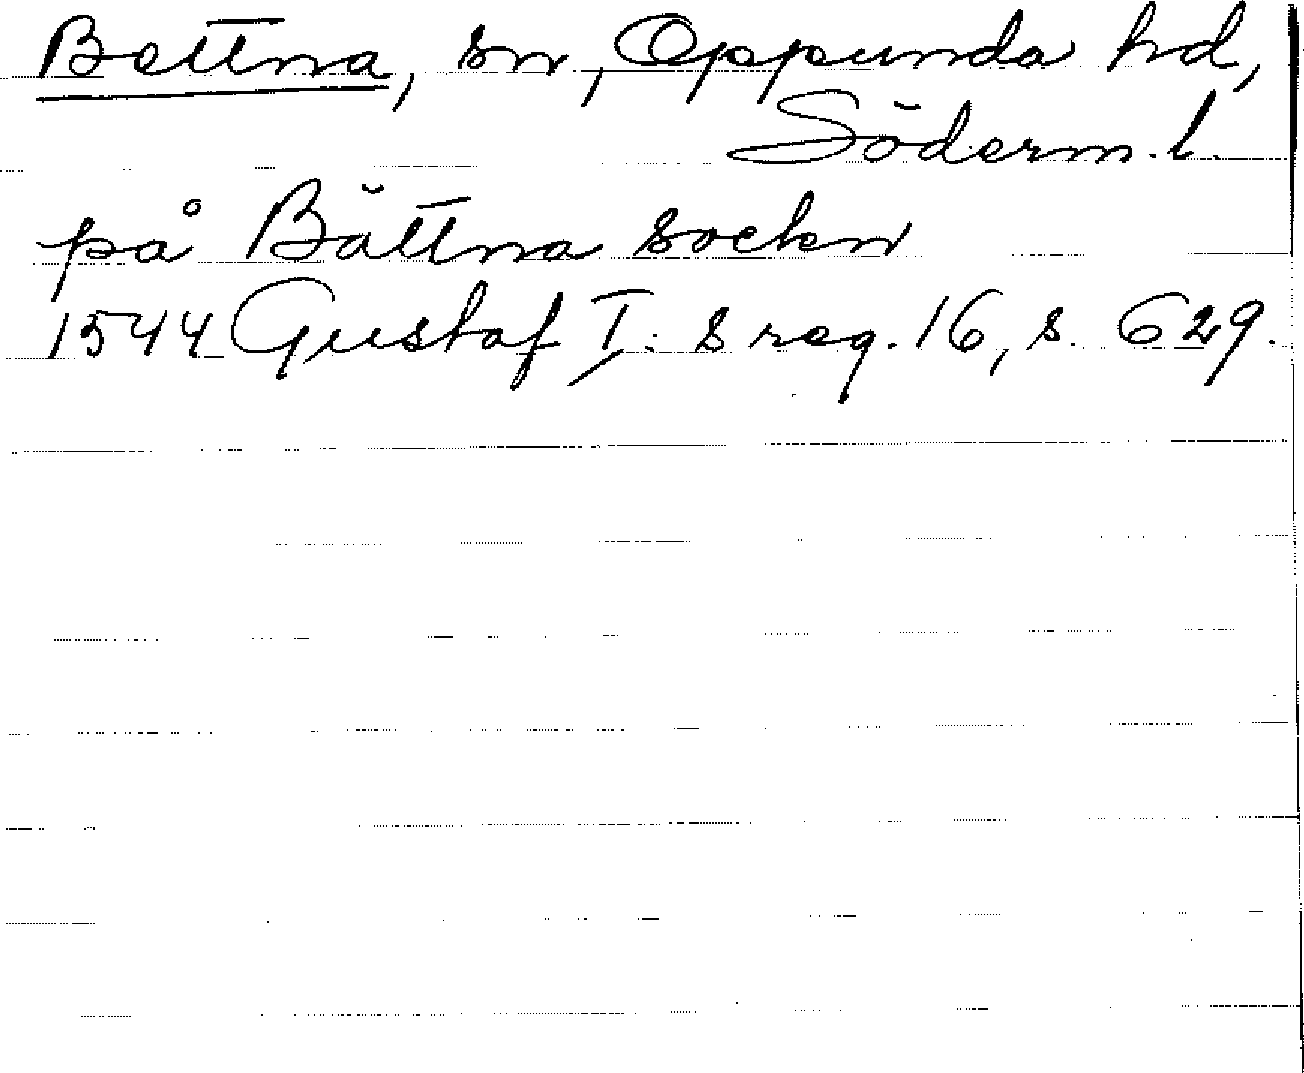 Bettna, sn, Oppunda hd,
Söderm. l.
på Bättna sockn
1544 Gustaf I:s reg. 16, s. 629.